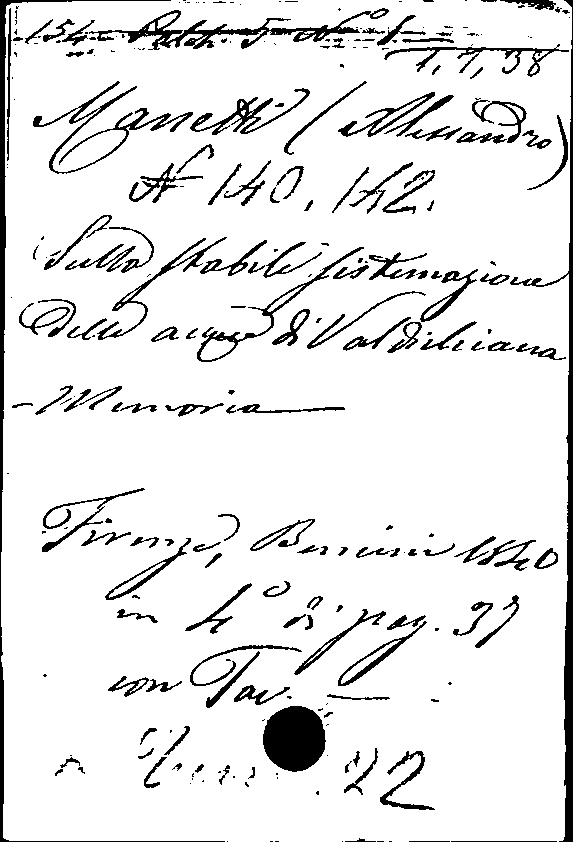 154 Palch. 5 N° 1
1, 7, 38
Manetti (Alessandro)
N 140, 142.
Sulla stabile sistemazione
delle acque di Valdichiana
- Memoria
Firenze, Bencini 1840
in 4° di pag. 37
con Tav. —
22